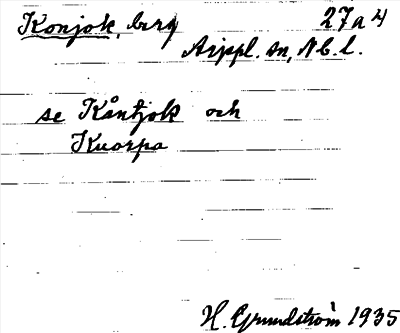 Konjok, berg 27a4
Arjepl. sn, Nb. l.
se Kåntjok och
Kuorpa
H. Grundström 1935